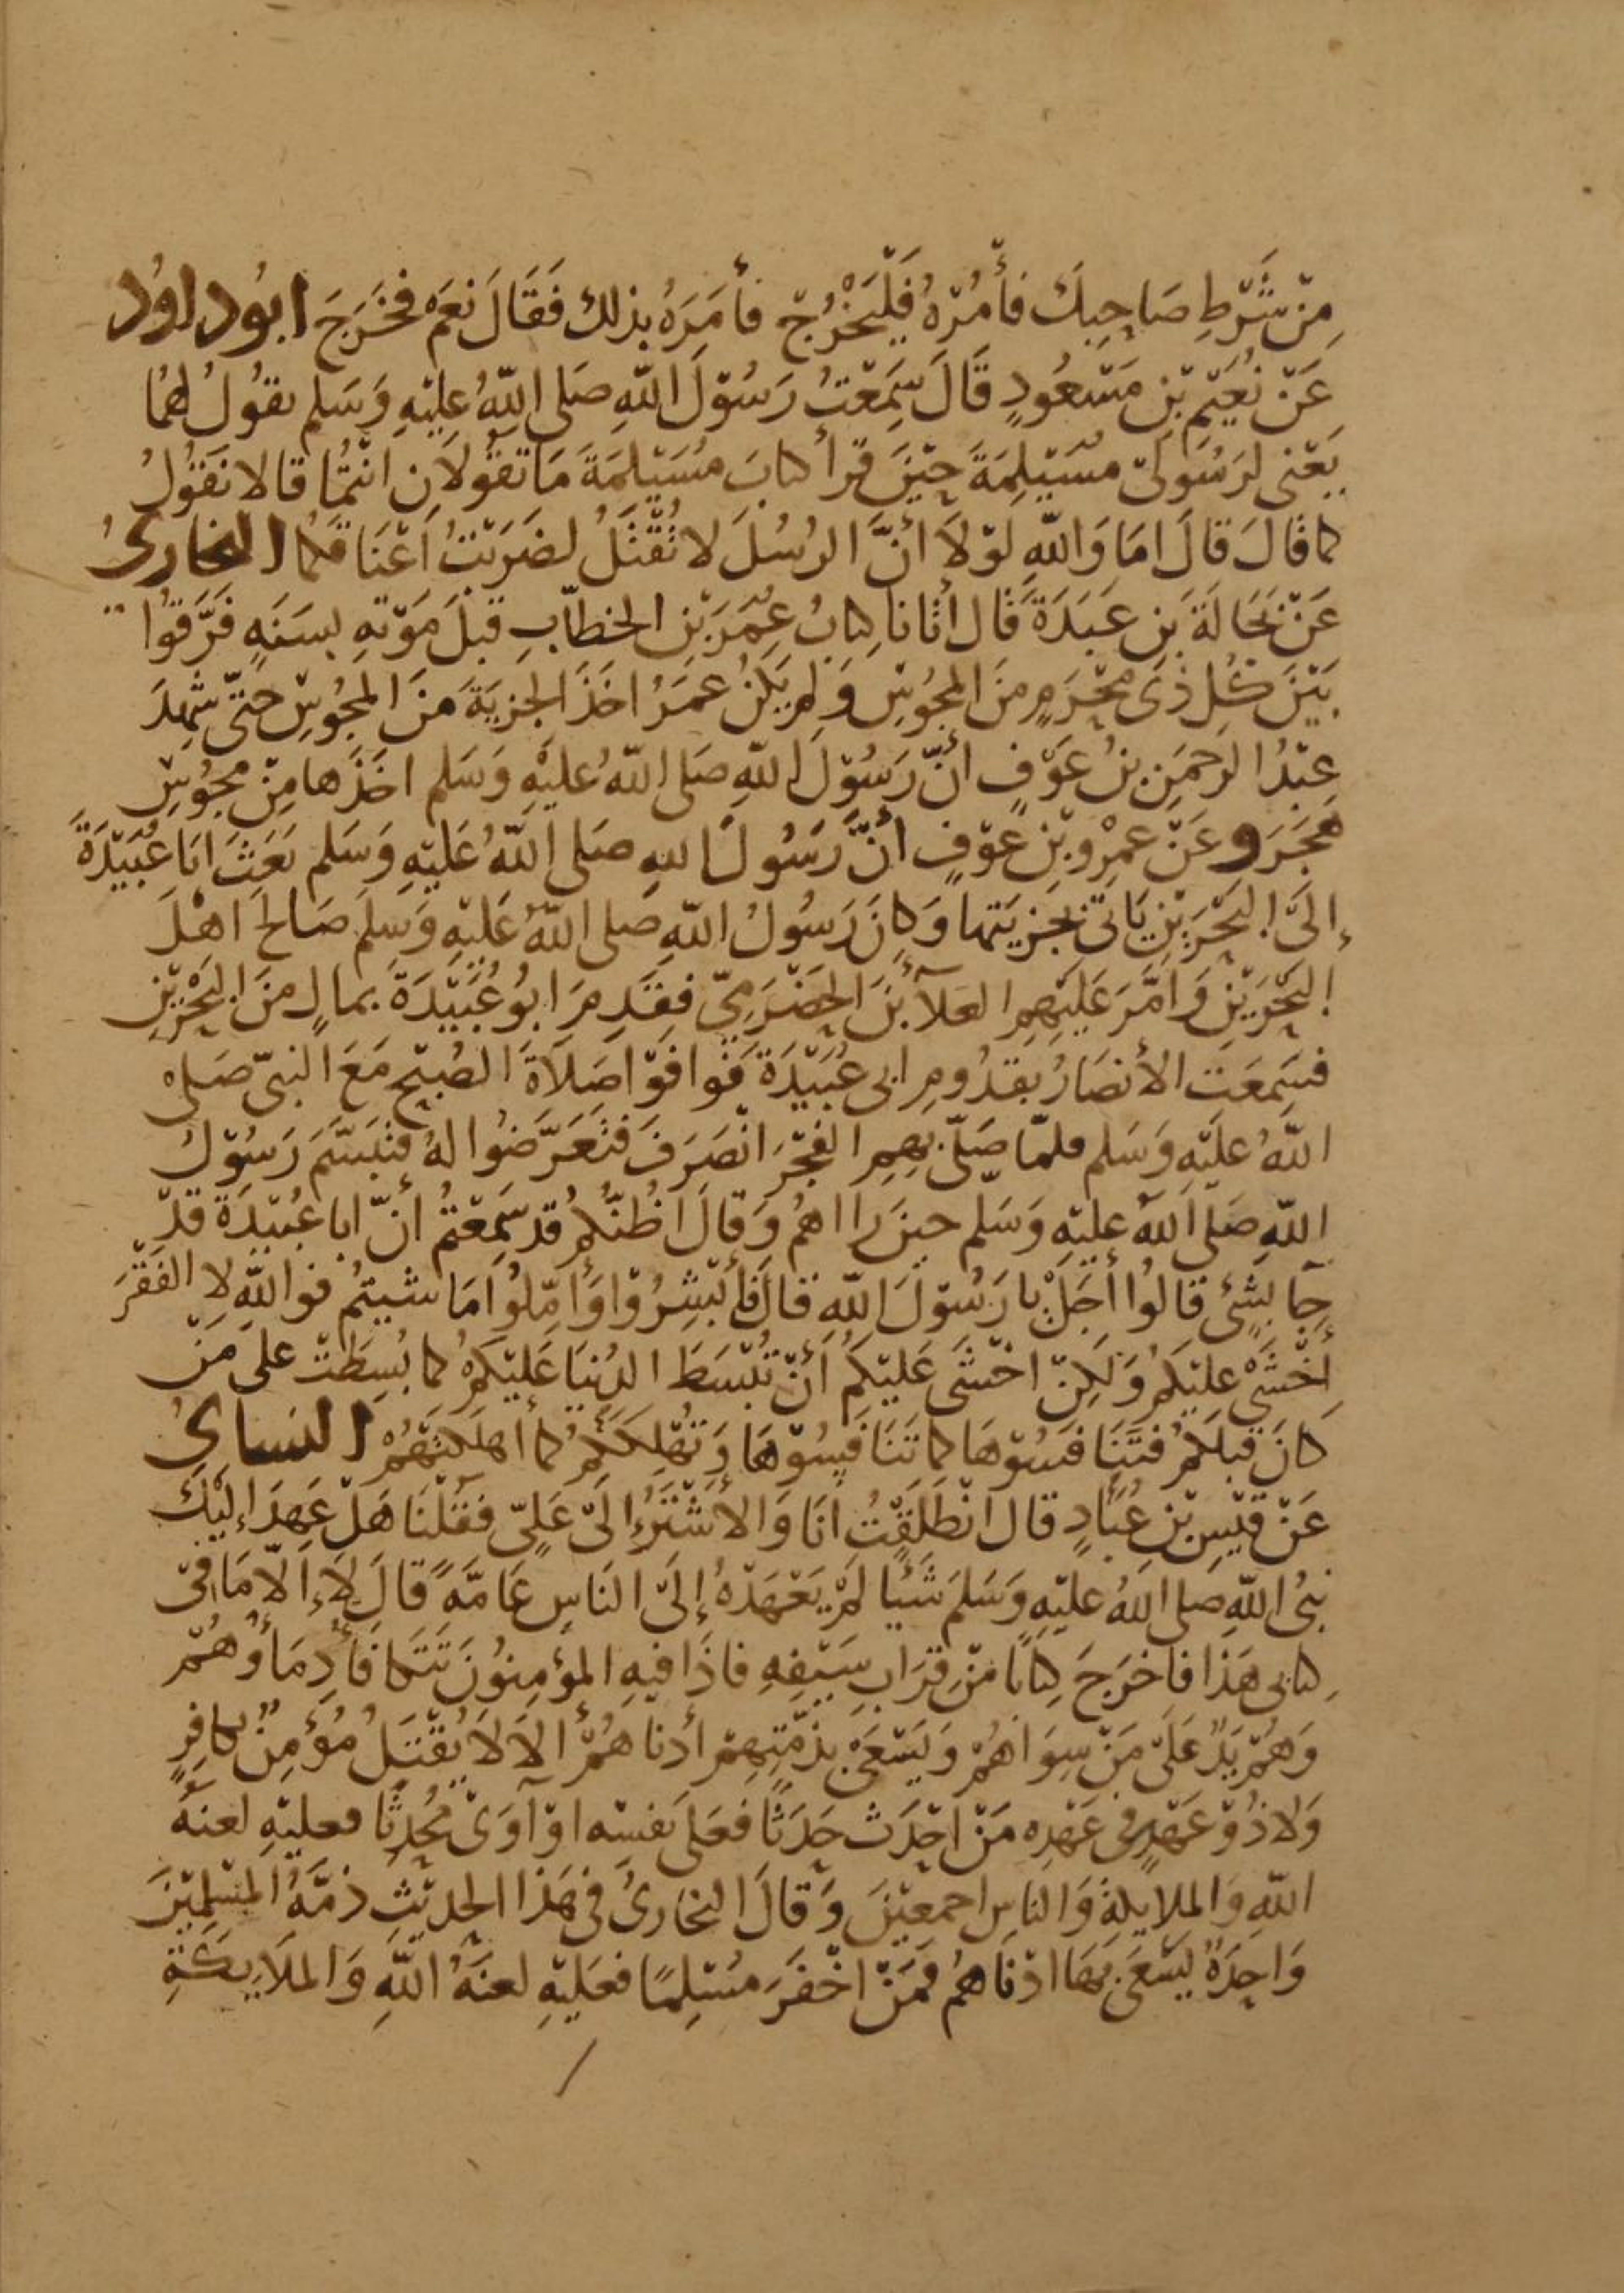 مِنْ شَرْطِ صَاحِبِكَ فأْمُرْهُ فَلْيَخْرُجْ فأمَرَهُ بذلك فَقَالَ نعَمْ فخَرَجَ ابُوداوُد
عَنْ نُعَيْمِ بْنِ مَسْعُودٍ قَالَ سَمِعْتُ رَسُوْلَ اللّهِ صَلى اللّهُ عليْهِ وَسَلم يقُولُ لهُمَا
يَعْنى لرَسُولَىْ مسَيْلِمَةَ حِيْنَ قرأ كتابَ مُسَيْلمَةَ مَا تقُولاَنِ انْتُمَا قالا نَقوُلُ
كما قَالَ قالَ امَا وَاللّهِ لوْلاَ أنَّ الرسُلَ لا تُقْتَلُ لضرَبْتُ اَعْنَاقَكُما البخارىُ
عَنْ بَجَالَةَ بنِ عَبَدَةَ قَال أتَانا كِتابُ عُمَرَ بْنِ الخطَّابِ قبْلَ مَوْتهِ بسَنَةٍ فَرِّقوُا
بَيْنَ كُلِ ذِى مَحْرَمٍ منَ المجُوْسِ وَلم يَكُنْ عمَرُ اخَذَ الجزيَةَ منَ المجُوْسِ حَتّى شهِدَ
عبْدُ الرَحمَنِ بنُ عَوْفٍ أنّ رَسُوْلَ اللّهِ صَلى اللّهُ عليْهِ وَسَلم اخَذَها مِنْ مجُوْسِ
هَجَرَ وعَنْ عمْرِو بْنِ عَوْفٍ أنَّ رَسُولَ اللهِ صَلى اللّهُ عَليْهِ وَسَلم بَعَثَ ابَا عُبَيْدَةَ
إلىَ البَحْرَيْنِ يَاتى بجزيَتها وَكانَ رَسُولُ اللّهِ صَلى اللّهُ عَليْهِ وَسَلمَ صَالحَ اهْلَ
البَحْرَيْنِ وَامَّرَ عَليْهِمِ العَلآءَ بْنَ الحَضْرَمِيّ فقَدِمَ ابُو عُبَيْدَةَ بمالٍ منَ البَحْرَيْنِ
فسَمعَتِ الأنصَارُ بقدُومِ ابى عُبَيْدَةَ فَوافَوْا صَلاَةَ الصُبْحِ مَعَ النبىّ صَلى
اللّهُ عليْهِ وَسَلم فلمّا صَلّى بهِمِ الفجْرَ انْصَرَفَ فتَعَرَّضُوا لهُ فتبَسَّمَ رَسُوْلُ
اللّهِ صَلى اللّهُ عليْهِ وَسَلم حينَ رااهُم وَقالَ اظُنّكُم قد سَمِعْتمُ أنّ ابا عُبَيْدَةَ قدْ
جآ بشىْءٍ قالوُا أجَلْ يا رَسُوْلَ اللّهِ قالَ فأَبْشِرُوْا وَأمّلُوا مَا شيتمُ فواللّهِ لا الفَقْرَ
أخْشَى عليْكمُ وَلَكِنْ اخْشَى عَليْكُم أنْ تُبْسَطَ الدُنيَا عَليْكمُ كما بُسِطَتْ على مَنْ
كانَ قبْلكمُ فتَنَافسُوْهَا كما تَنَافسُوْهَا وَتُهْلِكَكمُ كما أهْلكتهُمْ النساىُ
عَنْ قيْسِ بْنِ عُبَادٍ قال انْطَلَقْتُ انَا وَالأشْتَرُ إلىَ عَلىّ فقُلْنَا هَلْ عَهِدَ إليْكَ
نبىُ اللّهِ صلى اللّهُ عليْهِ وَسَلمَ شَيْئا لَمْ يَعْهَدْهُ إلىَ النَاسِ عَامَّةً قالَ لاَ إلاّ مَا فىْ
كتابى هَذا فاخرَجَ كِتابًا مِنْ قرَابِ سَيْفِهِ فاذَا فيْهِ المؤمِنُونَ تَتَكافأ دِمَاؤُهُمْ
وَهُمْ يَدٌ عَلىَ مَنْ سِوَاهُمْ وَيَسْعَى بذمّتِهِمْ أدْناهُمْ ألاَ لاَ يُقْتَلُ مُؤمِنٌ بكافِرٍ
وَلا ذُوْ عَهْدٍ فى عَهْدِه مَنْ أحْدَثَ حَدَثًا فعَلى نَفسْه اوْ آوَى مُحْدِثًا فعليْهِ لعنَةُ
اللّهِ وَالملايكةِ وَالناسِ اجمعيْنَ وَقالَ البخارىُ فى هَذا الحديْثِ ذمَّةُ المسْلميْنَ
وَاحِدَةٌ يَسْعَى بهَا ادْنَاهُم فمَنْ اخْفَرَ مُسْلِمًا فعَليْهِ لعنَةُ اللّهِ وَالملاَيكَةِ